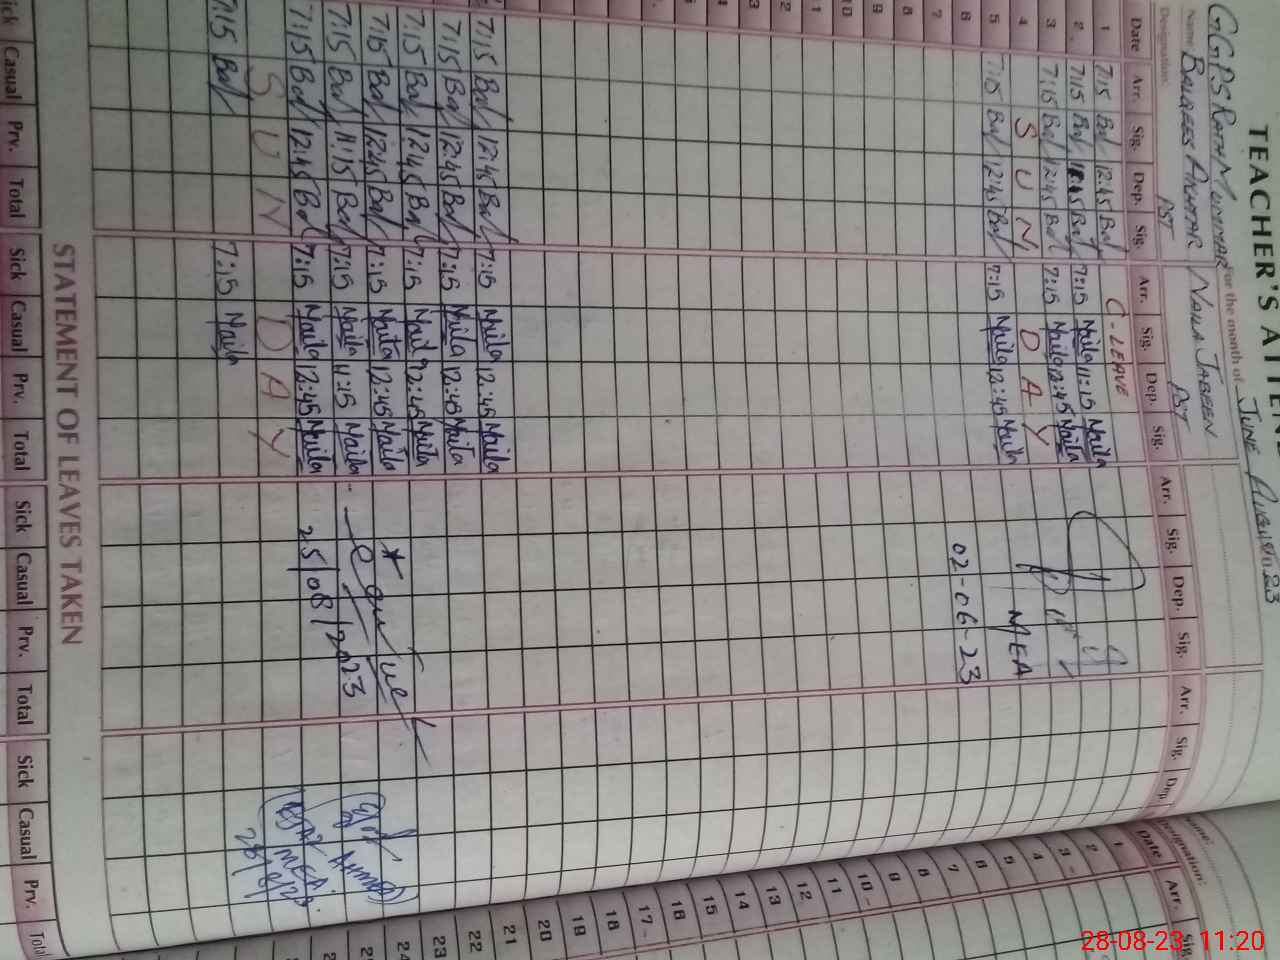 TEACHER'S ATTEN
GGPS RATH MUNMAR For the month of JUNE AUGUST 2023
Name: BALQEES AKHTAR NAILA JABEEN
Designation: PST PST
Date Arr. Sig. Dep. Sig. Arr. Sig. Dep. Sig. Arr. Sig. Dep. Sig. Arr. Sig. Dep.
1 7:15 Bal 12:45 Bal C-LEAVE
2 7:15 Bal 11:15 Bal 7:15 Naila 11:15 Naila
3 7:15 Bal 12:45 Bal 7:15 Naila 12:45 Naila
4 S U N D A Y MEA
5 7:15 Bal 12:45 Bal 7:15 Naila 12:45 Naila
6 02-06-23
7
8
9
10
11
12
13
7:15 Bal 12:45 Bal 7:15 Naila 12:45 Naila
7:15 Bal 12:45 Bal 7:15 Naila 12:45 Naila
7:15 Bal 12:45 Bal 7:15 Naila 12:45 Naila
7:15 Bal 12:45 Bal 7:15 Naila 12:45 Naila
7:15 Bal 11:15 Bal 7:15 Naila 11:15 Naila
7:15 Bal 12:45 Bal 7:15 Naila 12:45 Naila 25/08/2023
S U N D A Y MEA
7:15 Bal 7:15 Naila 28/8/23
STATEMENT OF LEAVES TAKEN
Sick Casual Prv. Total Sick Casual Prv. Total Sick Casual Prv. Total Sick Casual Prv. Total
Designation:
Date Arr. Sig.
1
2
3
4
5
6
7
8
9
10
11
12
13
14
15
16
17
18
19
20
21
22
23
24
28-08-23 11:20